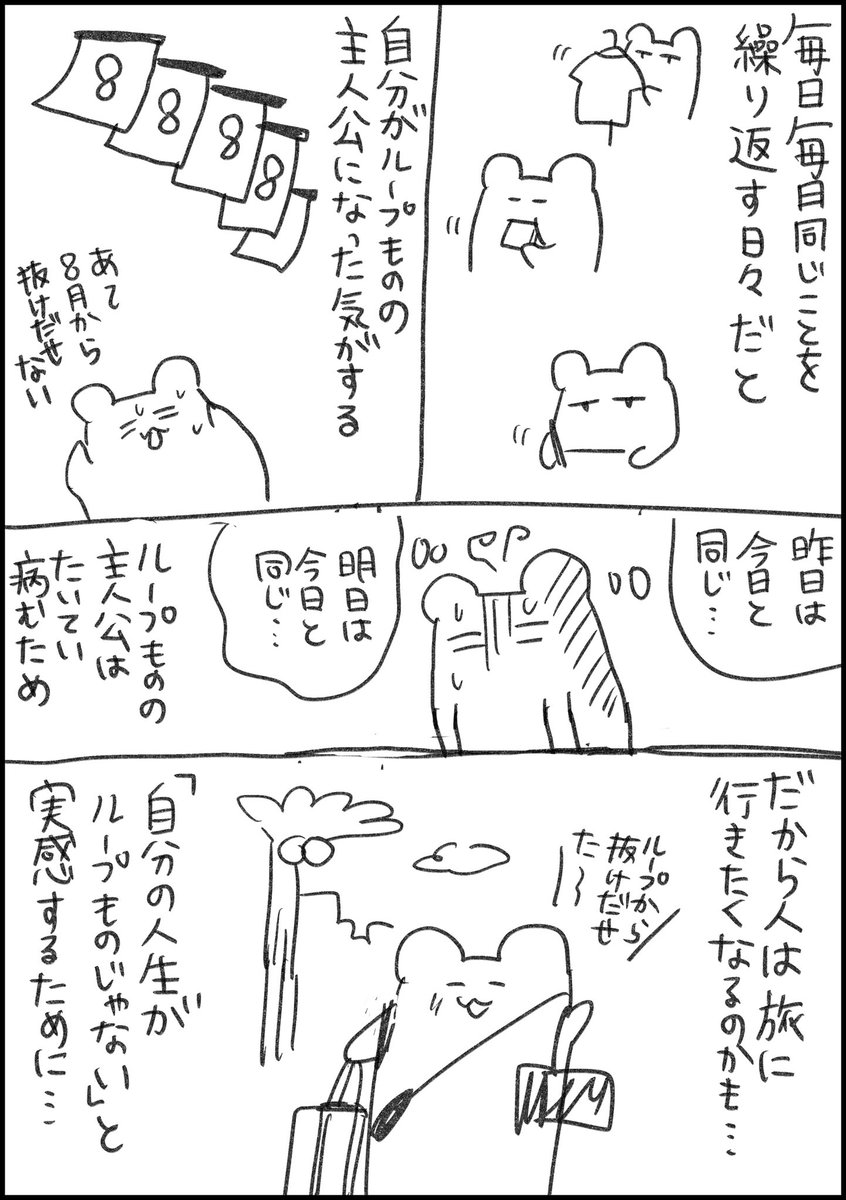 毎日毎日同じことを
繰り返す日々だと
自分がループものの
主人公になった気がする
8
8
8
8
あて
8月から
抜けだせ
ない
昨日は
今日と
同じ…
明日は
今日と
同じ…
ループものの
主人公は
たいてい
病むため
だから人は旅に
行きたくなるのかも…
ループから
抜けだせ
た〜
「自分の人生が
ループものじゃない」と
実感するために…